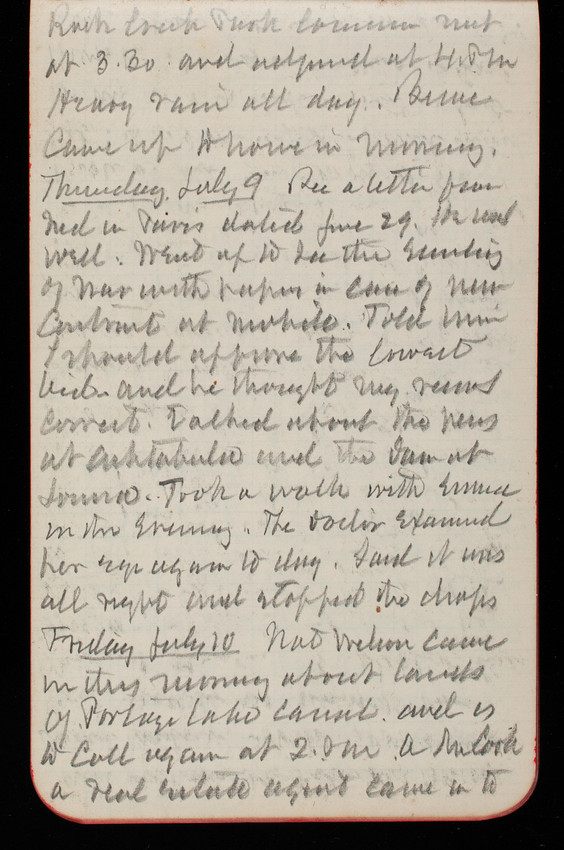 Rock Creek Park Commn met
at 3.30 and adjourned at 4 P m
Heavy rain all day.
Came up to house in morning.
Thursday July 9 Rec a letter from
Ned in Paris dated June 29. He was
well. Went up to see the Secretary
of War with papers in case of new
Contract at Mobile. Told him
I should approve the lowest
bids and he thought my views
correct. Talked about the piers
at Ashtabula and the Dam at
Took a walk with Emma
in the Evening. The Doctor Examined
her eye again to day. Said it was
all right and stopped the drops
Friday July 10 Nat Wilson came
in this morning about lands
of Portage Lake Canal. and is
to call again at 2. P m. A Mr Cook
a real estate agent came in to